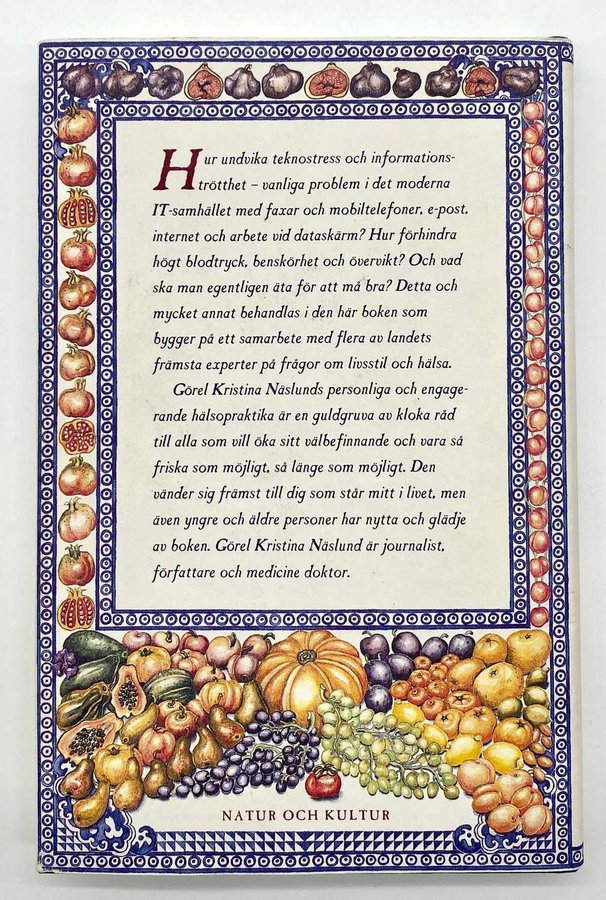 Hur undvika teknostress och informations-
trötthet – vanliga problem i det moderna
IT-samhället med faxar och mobiltelefoner, e-post,
internet och arbete vid dataskärm? Hur förhindra
högt blodtryck, benskörhet och övervikt? Och vad
ska man egentligen äta för att må bra? Detta och
mycket annat behandlas i den här boken som
bygger på ett samarbete med flera av landets
främsta experter på frågor om livsstil och hälsa.
Görel Kristina Näslunds personliga och engage-
rande hälsopraktika är en guldgruva av kloka råd
till alla som vill öka sitt välbefinnande och vara så
friska som möjligt, så länge som möjligt. Den
vänder sig främst till dig som står mitt i livet, men
även yngre och äldre personer har nytta och glädje
av boken. Görel Kristina Näslund är journalist,
författare och medicine doktor.
NATUR OCH KULTUR